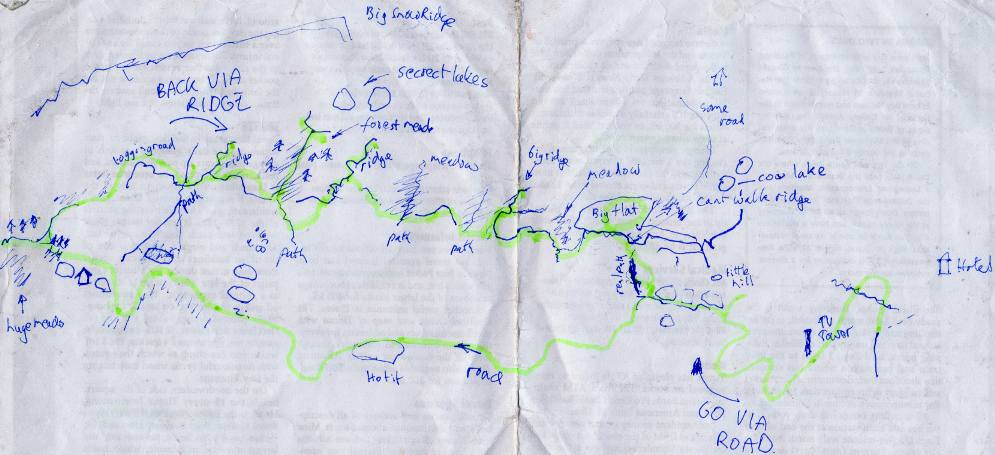 Big Snow Ridge
BACK VIA
RIDGE
secrect lakes
forest meado
loggingroad
ridge
ridge
meadow
big ridge
meadow
some
road
cow lake
cant walk ridge
Big flat
path
path
path
path
real path
?
little
hill
Hotel
huge meado
TV
Tower
Hotit
road
GO VIA
ROAD